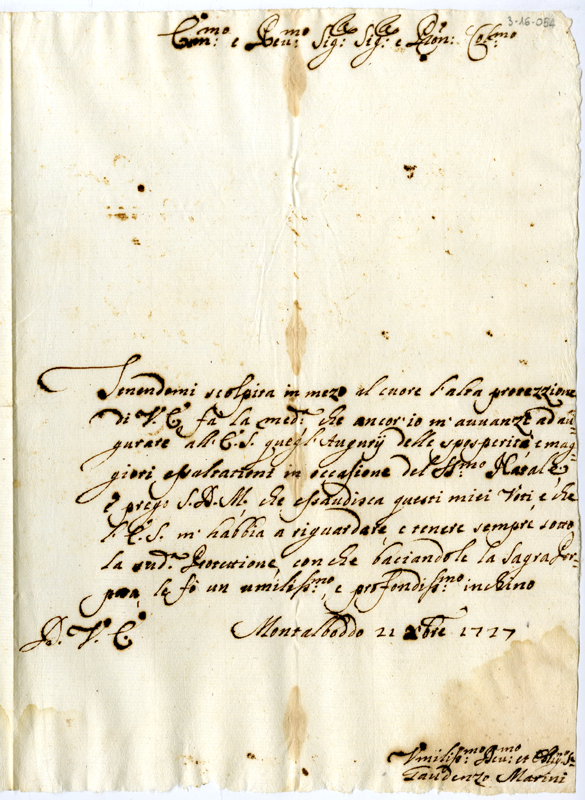 3-16-054
Em:mo e Rev:mo Sig:re Sig:re e Pron: Col:mo
Tenendomi scolpita in mezo al cuore l'alta protezzione
di V. E. fà la med:a che ancor'io m'avvanzi ad au=
gurare all'E. S. quegl'Augurij delle prosperità, e mag=
giori essaltationi in occasione del S:mo Natale
e prego S. D. M. che essaudisca questi miei Voti, e che
l'E. S. m'habbia à riguardare, e tenere sempre sotto
la sud:a Protetione, con che baciandole la Sagra Por=
pora, le fò un umiliss:mo, e profondiss:mo inchino
D. V. E. Montalboddo 21 Xbre 1727
Umiliss:mo Dev:mo et Oblig:o Se:
Gaudenzo Marini